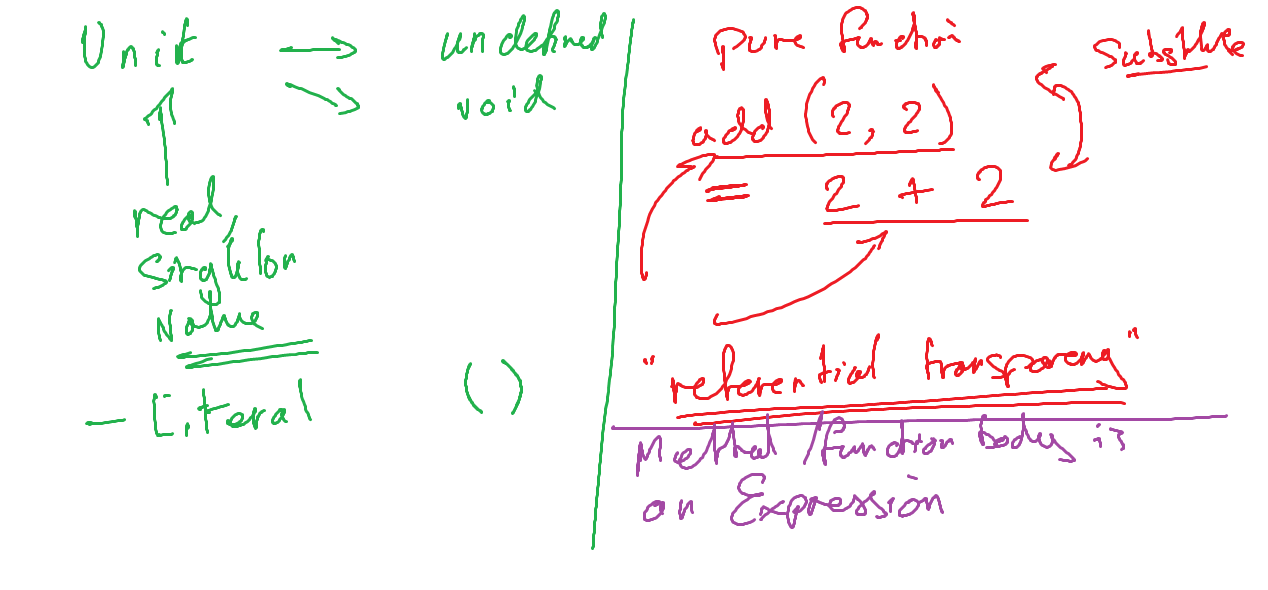 Unit → undefined
void
real,
Singleton
Value
- Literal ()
pure function
Substitute
add (2, 2)
= 2 + 2
"referential transparency"
Method / function body is
an Expression